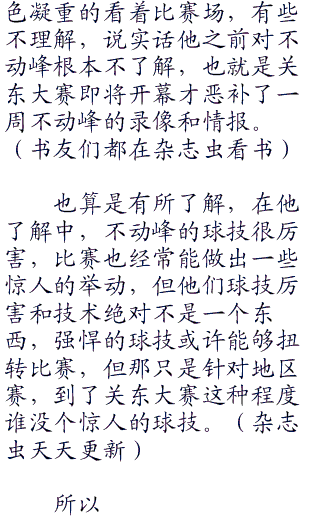 色凝重的看着比赛场，有些
不理解，说实话他之前对不
动峰根本不了解，也就是关
东大赛即将开幕才恶补了一
周不动峰的录像和情报。
（书友们都在杂志虫看书）
也算是有所了解，在他
了解中，不动峰的球技很厉
害，比赛也经常能做出一些
惊人的举动，但他们球技厉
害和技术绝对不是一个东
西，强悍的球技或许能够扭
转比赛，但那只是针对地区
赛，到了关东大赛这种程度
谁没个惊人的球技。（杂志
虫天天更新）
所以